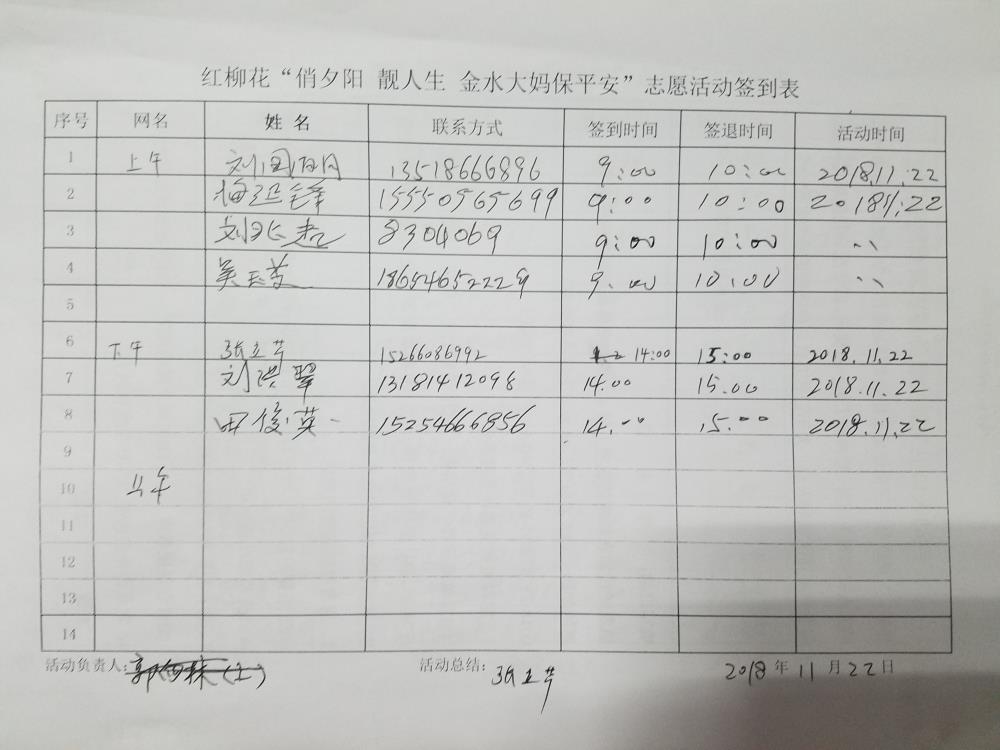 红柳花“俏夕阳 靓人生 金水大妈保平安”志愿活动签到表
序号 网名 姓名 联系方式 签到时间 签退时间 活动时间
1 上午 13518666896 9:00 10:00 2018.11.22
2 15550565699 9:00 10:00 2018.11.22
3 8304069 9:00 10:00 、、
4 18654652229 9.00 10.00 、、
5
6 下午 张立芹 15266086992 14:00 15:00 2018.11.22
7 刘洪翠 13181412098 14.00 15.00 2018.11.22
8 田俊英 15254666856 14.00 15.00 2018.11.22
9
10 上午
11
12
13
14
活动负责人: 活动总结: 张立芹 2018年11月22日